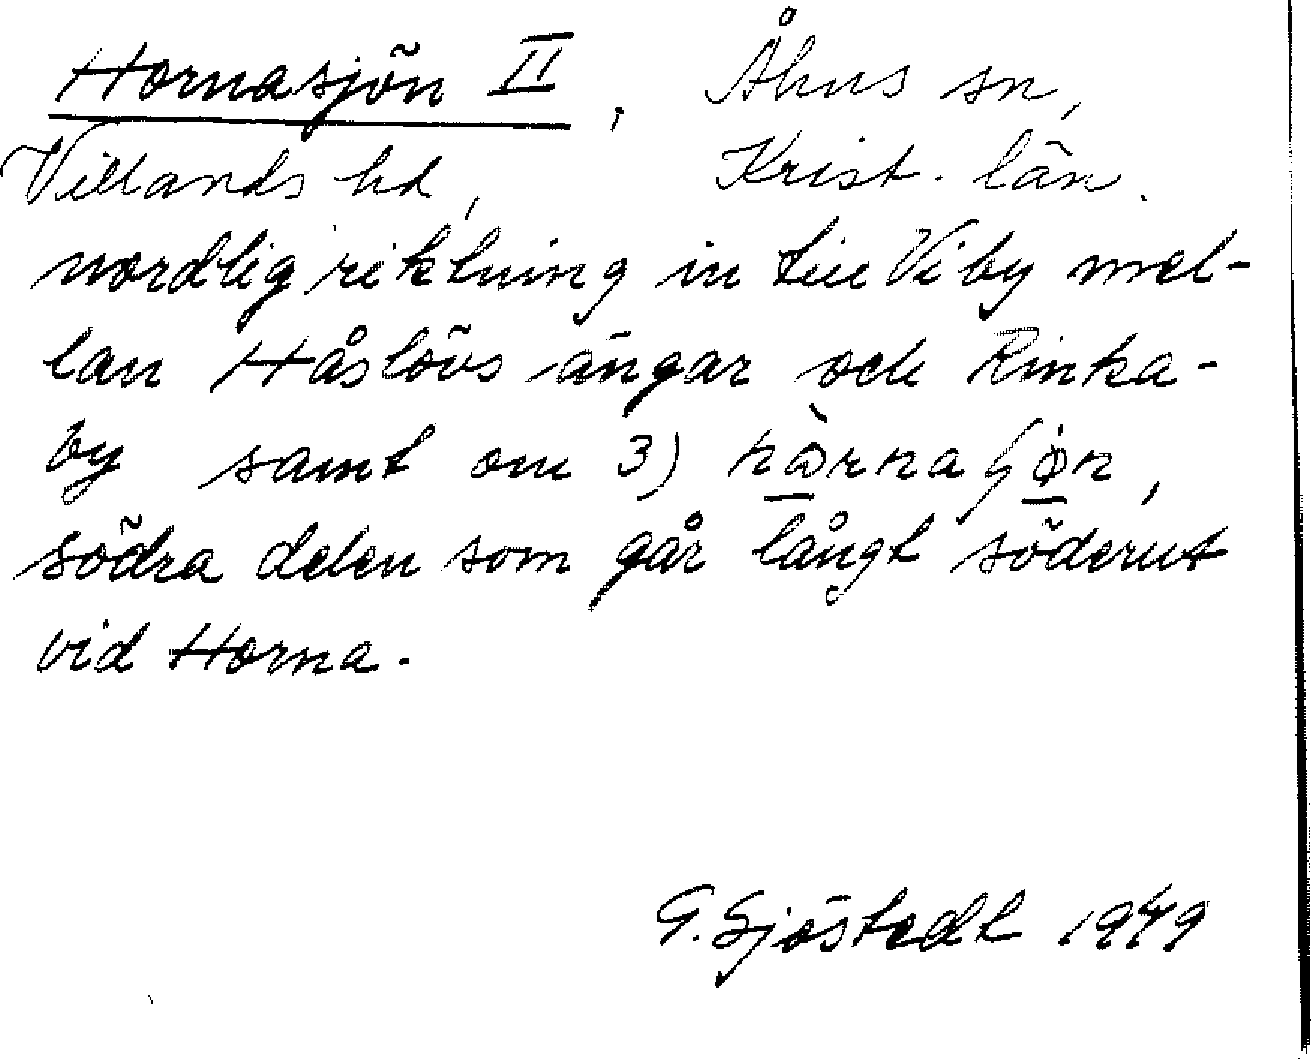 Hornasjön II, Åhus sn,
Villands hd, Krist. län.
nordlig riktning in till Viby mel-
lan Håslövs ängar och Rinka-
by samt om 3)
södra delen som går långt söderut
vid Horna.
G. Sjöstedt 1949